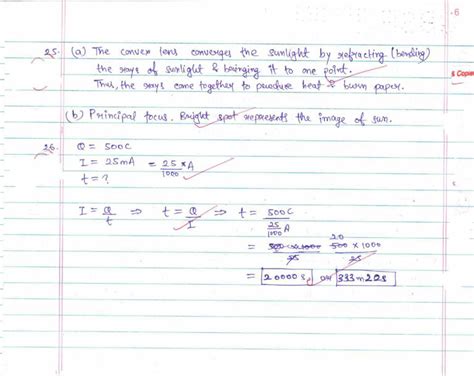 - 6
25. (a) The convex lens converges the sunlight by refracting (bending)
the rays of sunlight & bringing it to one point.
Thus, the rays come together to produce heat & burn paper.
(b) Principal focus. Bright spot represents the image of sun.
26. Q = 500C
I = 25mA = 25/1000 A
t = ?
I = Q/t ⇒ t = Q/I ⇒ t = 500C / 25/1000 A
= 20 500 × 1000 / 25
= 20000 s or 333m20s